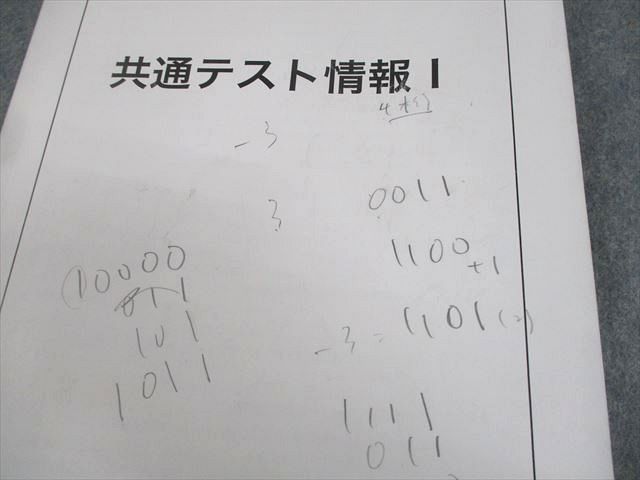 共通テスト情報Ⅰ
4桁
-3
3
0011
1100
+1
-3=1101(2)
10000
011
101
1011
1111
011